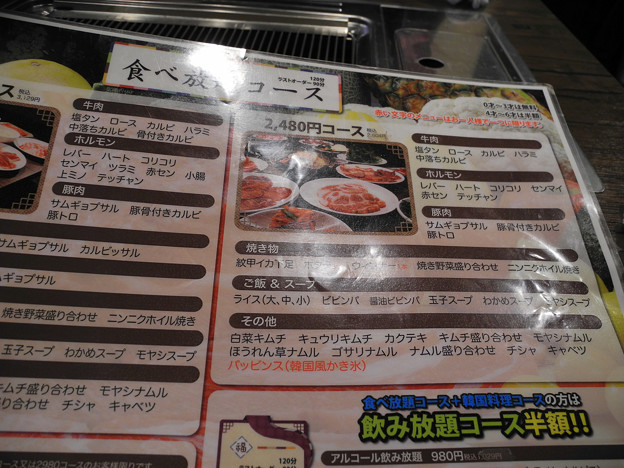 食べ放 コース
120分
ラストオーダー90分
税込
3,129円
牛肉
塩タン ロース カルビ ハラミ
中落ちカルビ 骨付きカルビ
ホルモン
レバー ハート コリコリ
センマイ ツラミ 赤セン 小腸
上ミノ テッチャン
豚肉
サムギョプサル 豚骨付きカルビ
豚トロ
サムギョプサル カルビッサル
サムギョプサル
焼き野菜盛り合わせ ニンニクホイル焼き
玉子スープ わかめスープ モヤシスープ
キムチ盛り合わせ モヤシナムル
盛り合わせ チシャ キャベツ
コース又は2980コースのお客様限りです。
0才~3才は無料
4才~6才は半額
2,480円コース
税込
牛肉
塩タン ロース カルビ ハラミ
中落ちカルビ
ホルモン
レバー ハート コリコリ センマイ
赤セン テッチャン
豚肉
サムギョプサル 豚骨付きカルビ
豚トロ
焼き物
紋甲イカ下足 焼き野菜盛り合わせ ニンニクホイル焼き
ご飯 & スープ
ライス(大、中、小) ビビンバ 醤油ビビンバ 玉子スープ わかめスープ モヤシスープ
その他
白菜キムチ キュウリキムチ カクテキ キムチ盛り合わせ モヤシナムル
ほうれん草ナムル ゴサリナムル ナムル盛り合わせ チシャ キャベツ
パッピンス(韓国風かき氷)
食べ放題コース+韓国料理コースの方は
飲み放題コース半額!!
福
120分
アルコール飲み放題 980円 税込1,029円